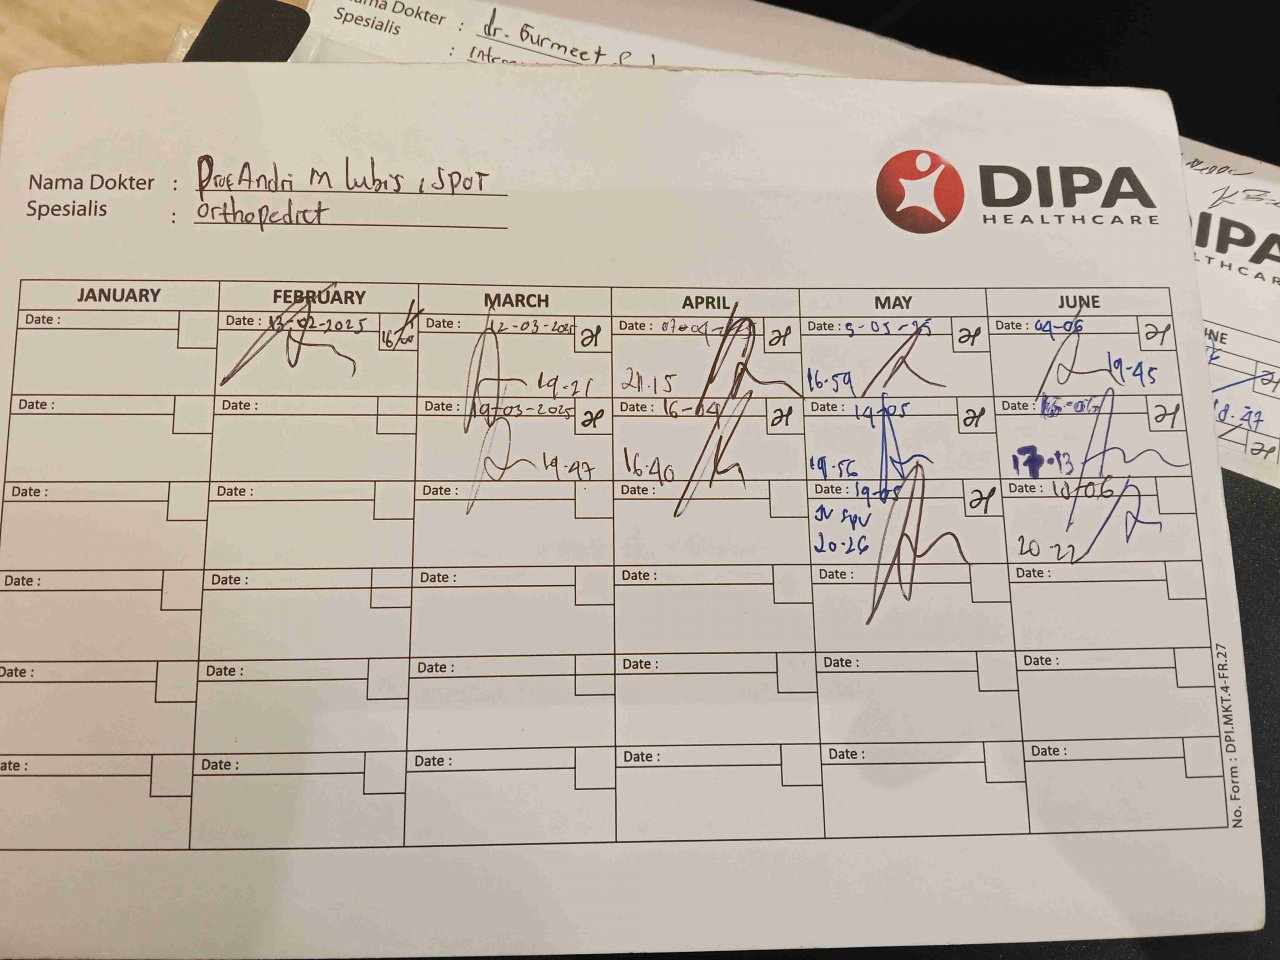 Nama Dokter : dr. Gurmeet
Spesialis :
Nama Dokter : Prof Andri M Lubis, SpOT
Spesialis : Orthopedict
DIPA
HEALTHCARE
JANUARY FEBRUARY MARCH APRIL MAY JUNE
Date : Date : 13-02-2025 Date : 12-03-2025 Date : 07-04- Date : 5-05-25 Date : 04-06
19-21 21.15 16-59 19-45
Date : Date : Date : 19-03-2025 Date : 16-04 Date : 14-05 Date :
19-47 16-40 19-56 17-13
Date : Date : Date : Date : Date : 19-05 Date : 18-06
JV SPV
20-26 20-22
Date : Date : Date : Date : Date : Date :
Date : Date : Date : Date : Date : Date :
ate : Date : Date : Date : Date : Date :
No. Form : DPI.MKT.4-FR.27
IPA
LTHCAR
NE